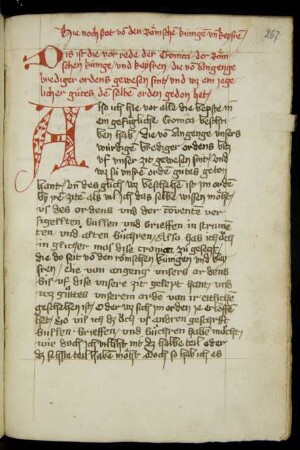 Hie noch stat vō den Römsche küngen vn̄ keyseren
267
Dis ist die vor rede der Cronica der Röm
schen künge / vnd keysren / die vō angenge
brediger ordens gewesen sint / vnd wz ein yege
licher gutes dem selbē orden gedon het /
Also ich hie vor alle die bepste in
ein gefügliche Cronica beschri
ben hab / die vō angenge vnsers
würdige brediger ordens biß
vf vnser zit gewesen sint / vnd
wz sü vnsrē ordē gutes geton
hant / vn̄ des glich wz beschehē ist im ordē
by yrē zitē als vil ich das selbe wissen möht /
us des ordens vnd der cōuente ver
sigelten bullen vnd brieffen in strume
ten / vnd alten büchren / Also hab ich och
in glicher mas dise cronica zu gesetzt /
die do seit vō den römschen küngen vnd key
sren / die von angeng vnsers ordens
biß vf dise vnsere zit gelept hant / vnd
wz gutes vnserem ordē von ir etliche
geschehen ist / Oder wz sich im orden ye erlöfē
het / Do vil ich dz och vs andren geschrift
bullen / brieffen / vnd büchren habē möcht /
wie doch ich villiht nit dz halbe teil oder
dz sehste teil habē möht Doch so hab ich es